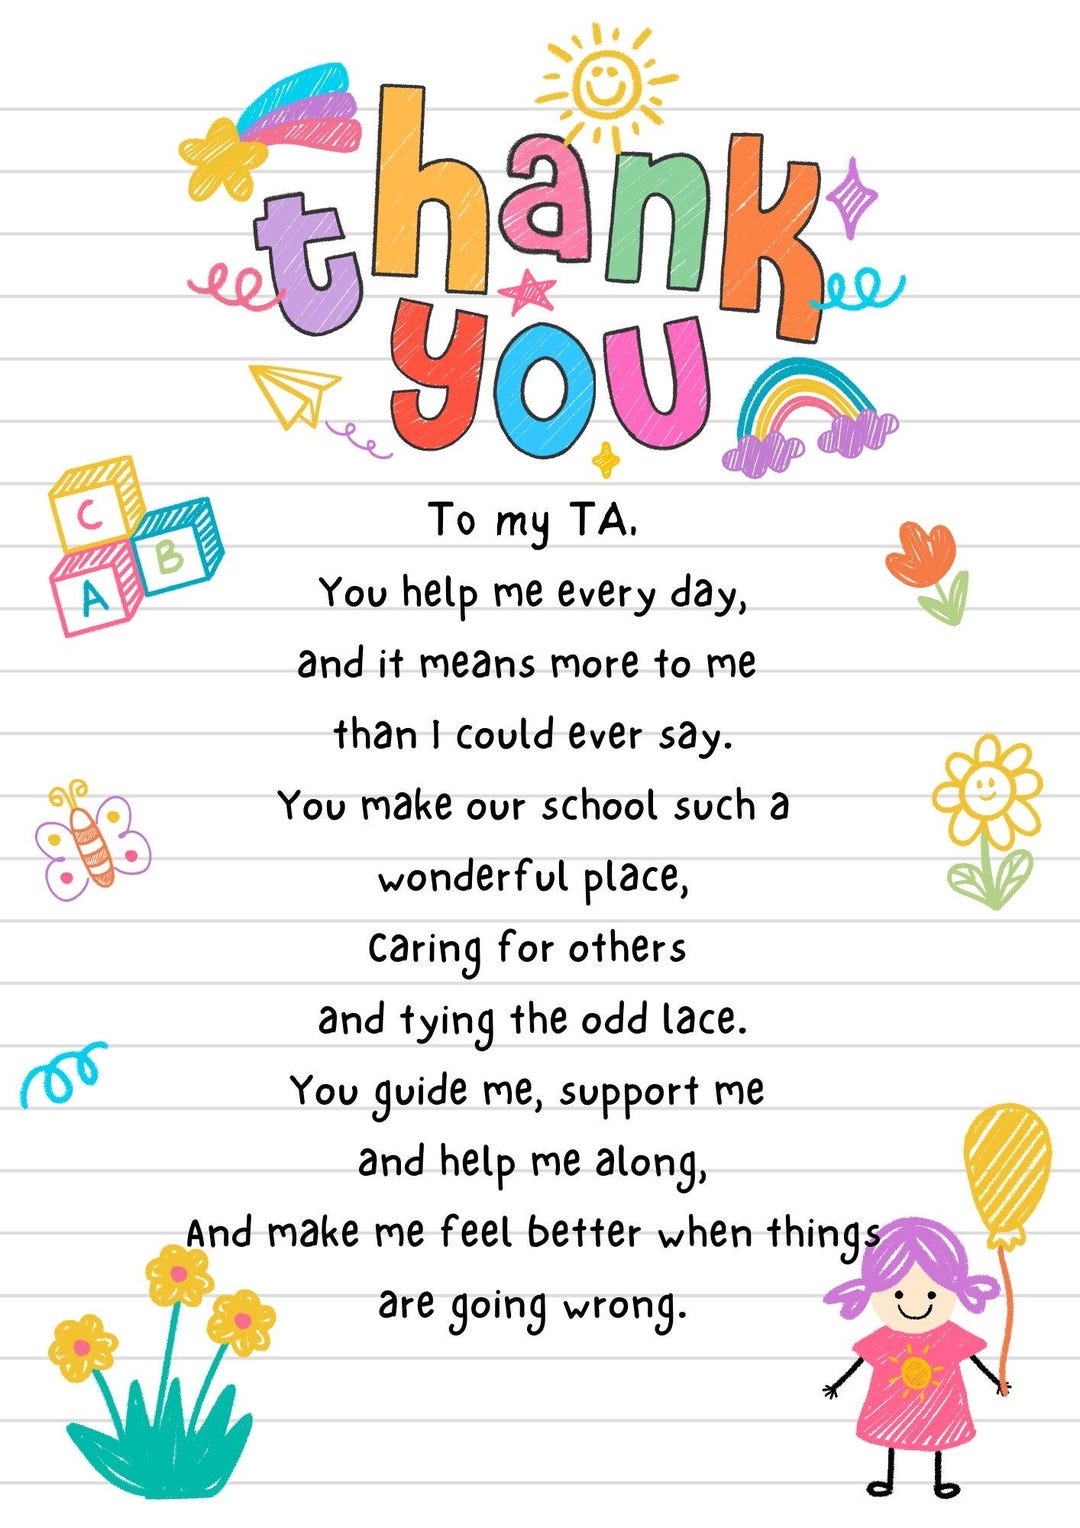 thank
you
C
B
A
To my TA.
You help me every day,
and it means more to me
than I could ever say.
You make our school such a
wonderful place,
Caring for others
and tying the odd lace.
You guide me, support me
and help me along,
And make me feel better when things
are going wrong.